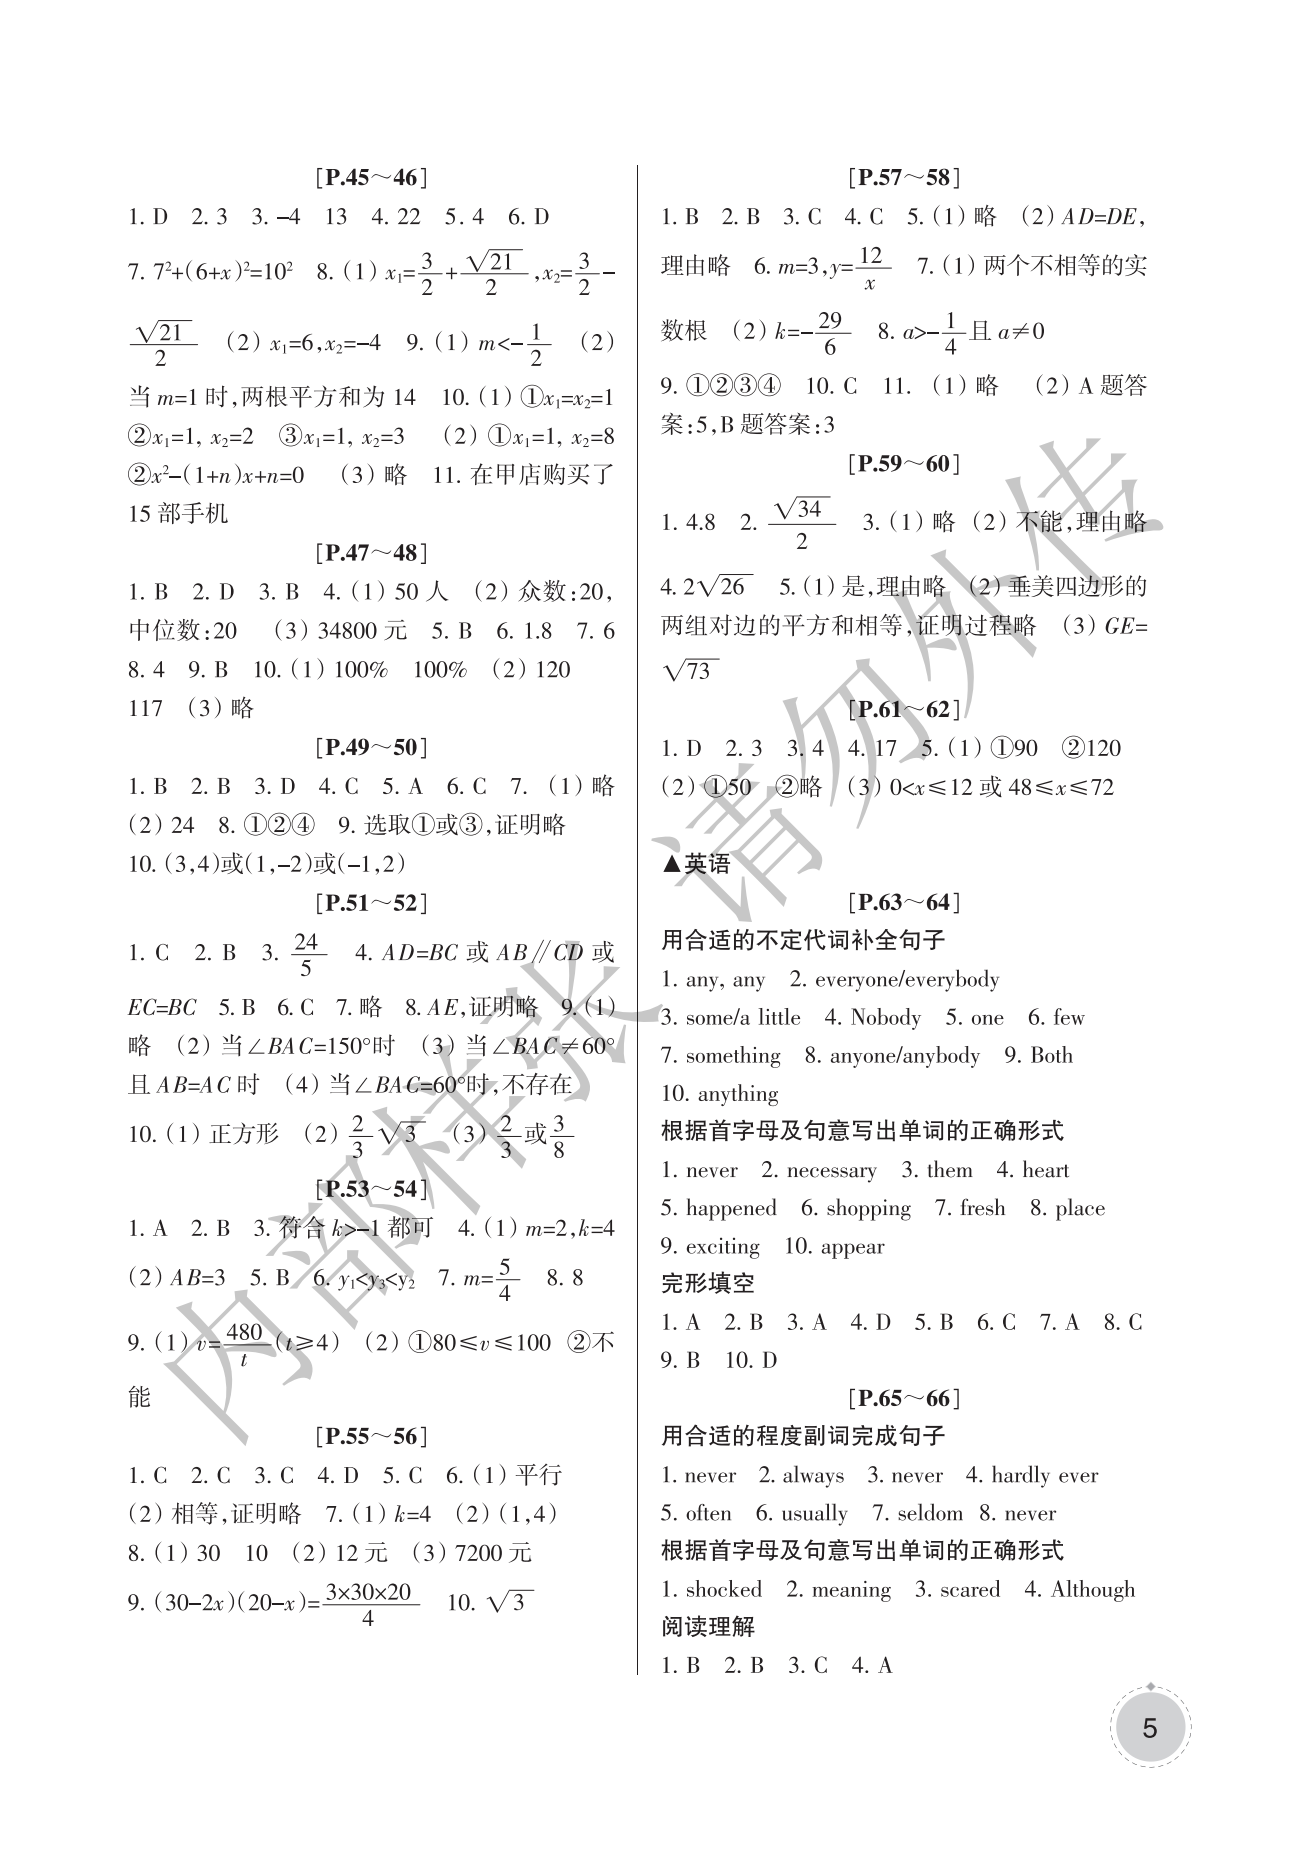 [P.45～46]
1. D 2. 3 3. -4 13 4. 22 5. 4 6. D
7. 7²+(6+x)²=10² 8. (1) x₁=3/2+√21/2,x₂=3/2-
√21/2 (2) x₁=6,x₂=-4 9. (1) m<-1/2 (2)
当 m=1 时,两根平方和为 14 10. (1) ①x₁=x₂=1
②x₁=1, x₂=2 ③x₁=1, x₂=3 (2) ①x₁=1, x₂=8
②x²-(1+n)x+n=0 (3) 略 11. 在甲店购买了
15 部手机
[P.47～48]
1. B 2. D 3. B 4. (1) 50 人 (2) 众数:20,
中位数:20 (3) 34800 元 5. B 6. 1.8 7. 6
8. 4 9. B 10. (1) 100% 100% (2) 120
117 (3) 略
[P.49～50]
1. B 2. B 3. D 4. C 5. A 6. C 7. (1) 略
(2) 24 8. ①②④ 9. 选取①或③,证明略
10. (3,4)或(1,-2)或(-1,2)
[P.51～52]
1. C 2. B 3. 24/5 4. AD=BC 或 AB∥CD 或
EC=BC 5. B 6. C 7. 略 8. AE,证明略 9. (1)
略 (2) 当∠BAC=150°时 (3) 当∠BAC≠60°
且 AB=AC 时 (4) 当∠BAC=60°时,不存在
10. (1) 正方形 (2) 2/3√3 (3) 2/3或3/8
[P.53～54]
1. A 2. B 3. 符合 k>-1 都可 4. (1) m=2,k=4
(2) AB=3 5. B 6. y₁<y₃<y₂ 7. m=5/4 8. 8
9. (1) v=480/t(t≥4) (2) ①80≤v≤100 ②不
能
[P.55～56]
1. C 2. C 3. C 4. D 5. C 6. (1) 平行
(2) 相等,证明略 7. (1) k=4 (2) (1,4)
8. (1) 30 10 (2) 12 元 (3) 7200 元
9. (30-2x)(20-x)=3×30×20/4 10. √3
[P.57～58]
1. B 2. B 3. C 4. C 5. (1) 略 (2) AD=DE,
理由略 6. m=3,y=12/x 7. (1) 两个不相等的实
数根 (2) k=-29/6 8. a>-1/4且 a≠0
9. ①②③④ 10. C 11. (1) 略 (2) A 题答
案:5,B 题答案:3
[P.59～60]
1. 4.8 2. √34/2 3. (1) 略 (2) 不能,理由略
4. 2√26 5. (1) 是,理由略 (2) 垂美四边形的
两组对边的平方和相等,证明过程略 (3) GE=
√73
[P.61～62]
1. D 2. 3 3. 4 4. 17 5. (1) ①90 ②120
(2) ①50 ②略 (3) 0<x≤12 或 48≤x≤72
▲英语
[P.63～64]
用合适的不定代词补全句子
1. any, any 2. everyone/everybody
3. some/a little 4. Nobody 5. one 6. few
7. something 8. anyone/anybody 9. Both
10. anything
根据首字母及句意写出单词的正确形式
1. never 2. necessary 3. them 4. heart
5. happened 6. shopping 7. fresh 8. place
9. exciting 10. appear
完形填空
1. A 2. B 3. A 4. D 5. B 6. C 7. A 8. C
9. B 10. D
[P.65～66]
用合适的程度副词完成句子
1. never 2. always 3. never 4. hardly ever
5. often 6. usually 7. seldom 8. never
根据首字母及句意写出单词的正确形式
1. shocked 2. meaning 3. scared 4. Although
阅读理解
1. B 2. B 3. C 4. A
5
内部样张 请勿外传